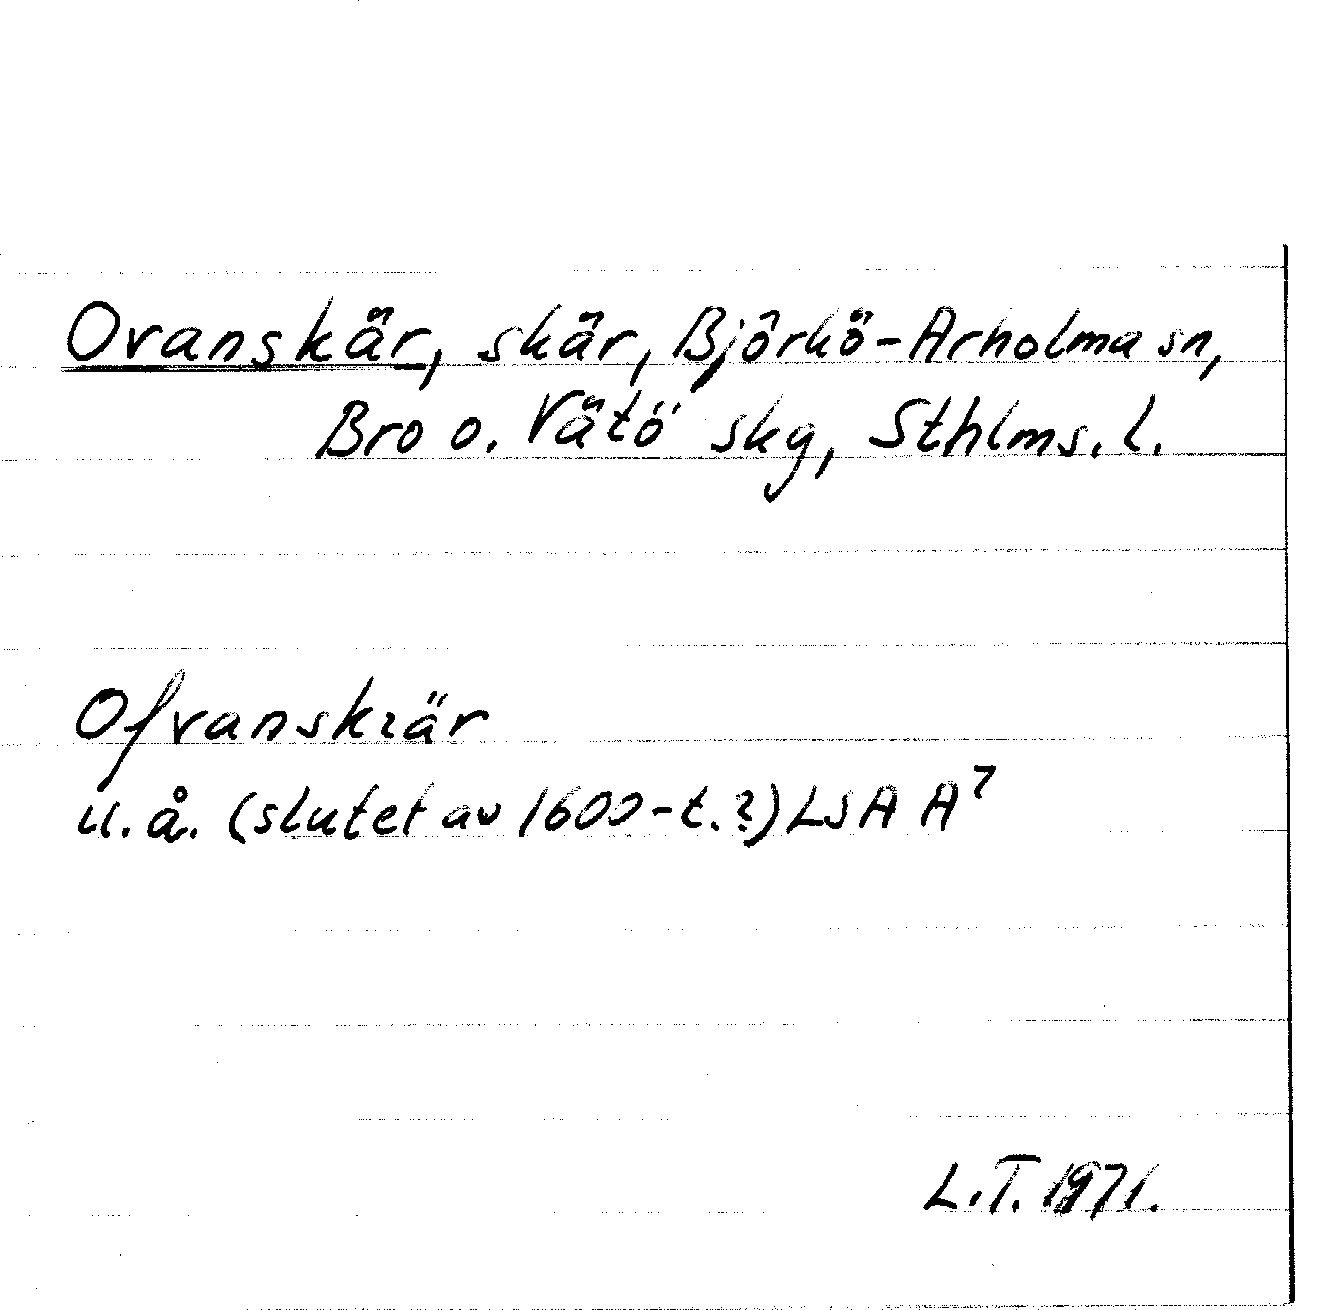 Ovanskär, skär, Björkö-Arholma sn,
Bro o. Vätö skg, Sthlms. l.
Ofvanskiär
u.å. (slutet av 1600-t.?) LSA A⁷
L.T. 1971.